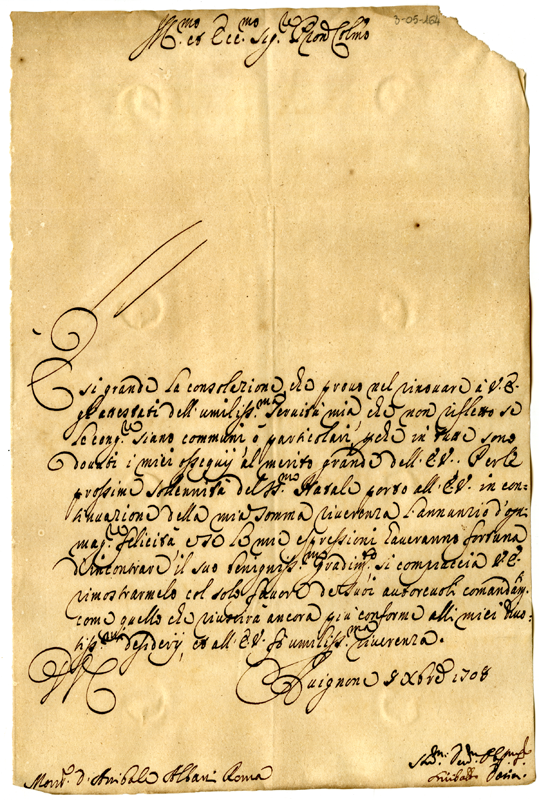 3-05-164
Ill.mo et Ecc.mo Sig.re Pron Colmo
È si grande la consolazione che provo nel rinovare à V.E.
gl'attestati dell'umiliss.ma servitù mia che non rifletto se
le cong.re siano communi ò particolari, pche in tutte sono
dovuti i miei ossequij al merito grande dell'E.V.. Per le
prossime solennità del SS.mo Natale porto all'E.V. in con=
tinuazione della mia somma riverenza l'annunzio d'ogni
mag.re felicità e se le mie espressioni haveranno fortuna
d'incontrare il suo benigniss.mo gradim.to si compiaccia V.E.
rimostrarmelo col solo favore de suoi autorevoli comandam.ti
come quello che riuscirà ancora più conforme alli miei
desiderij, et all'E.V. fò umiliss.ma riverenza.
Avignone 8 Xbre 1708
Mons.r D. Anibale Albani Roma